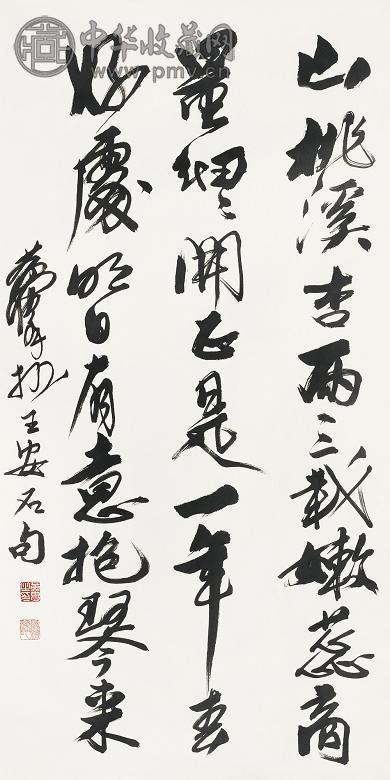 山桃溪杏两三栽嫩蕊商
量细々开正是一年春
好处明日有意抱琴来
抄王安石句
中华收藏网
www.pmyv.cn